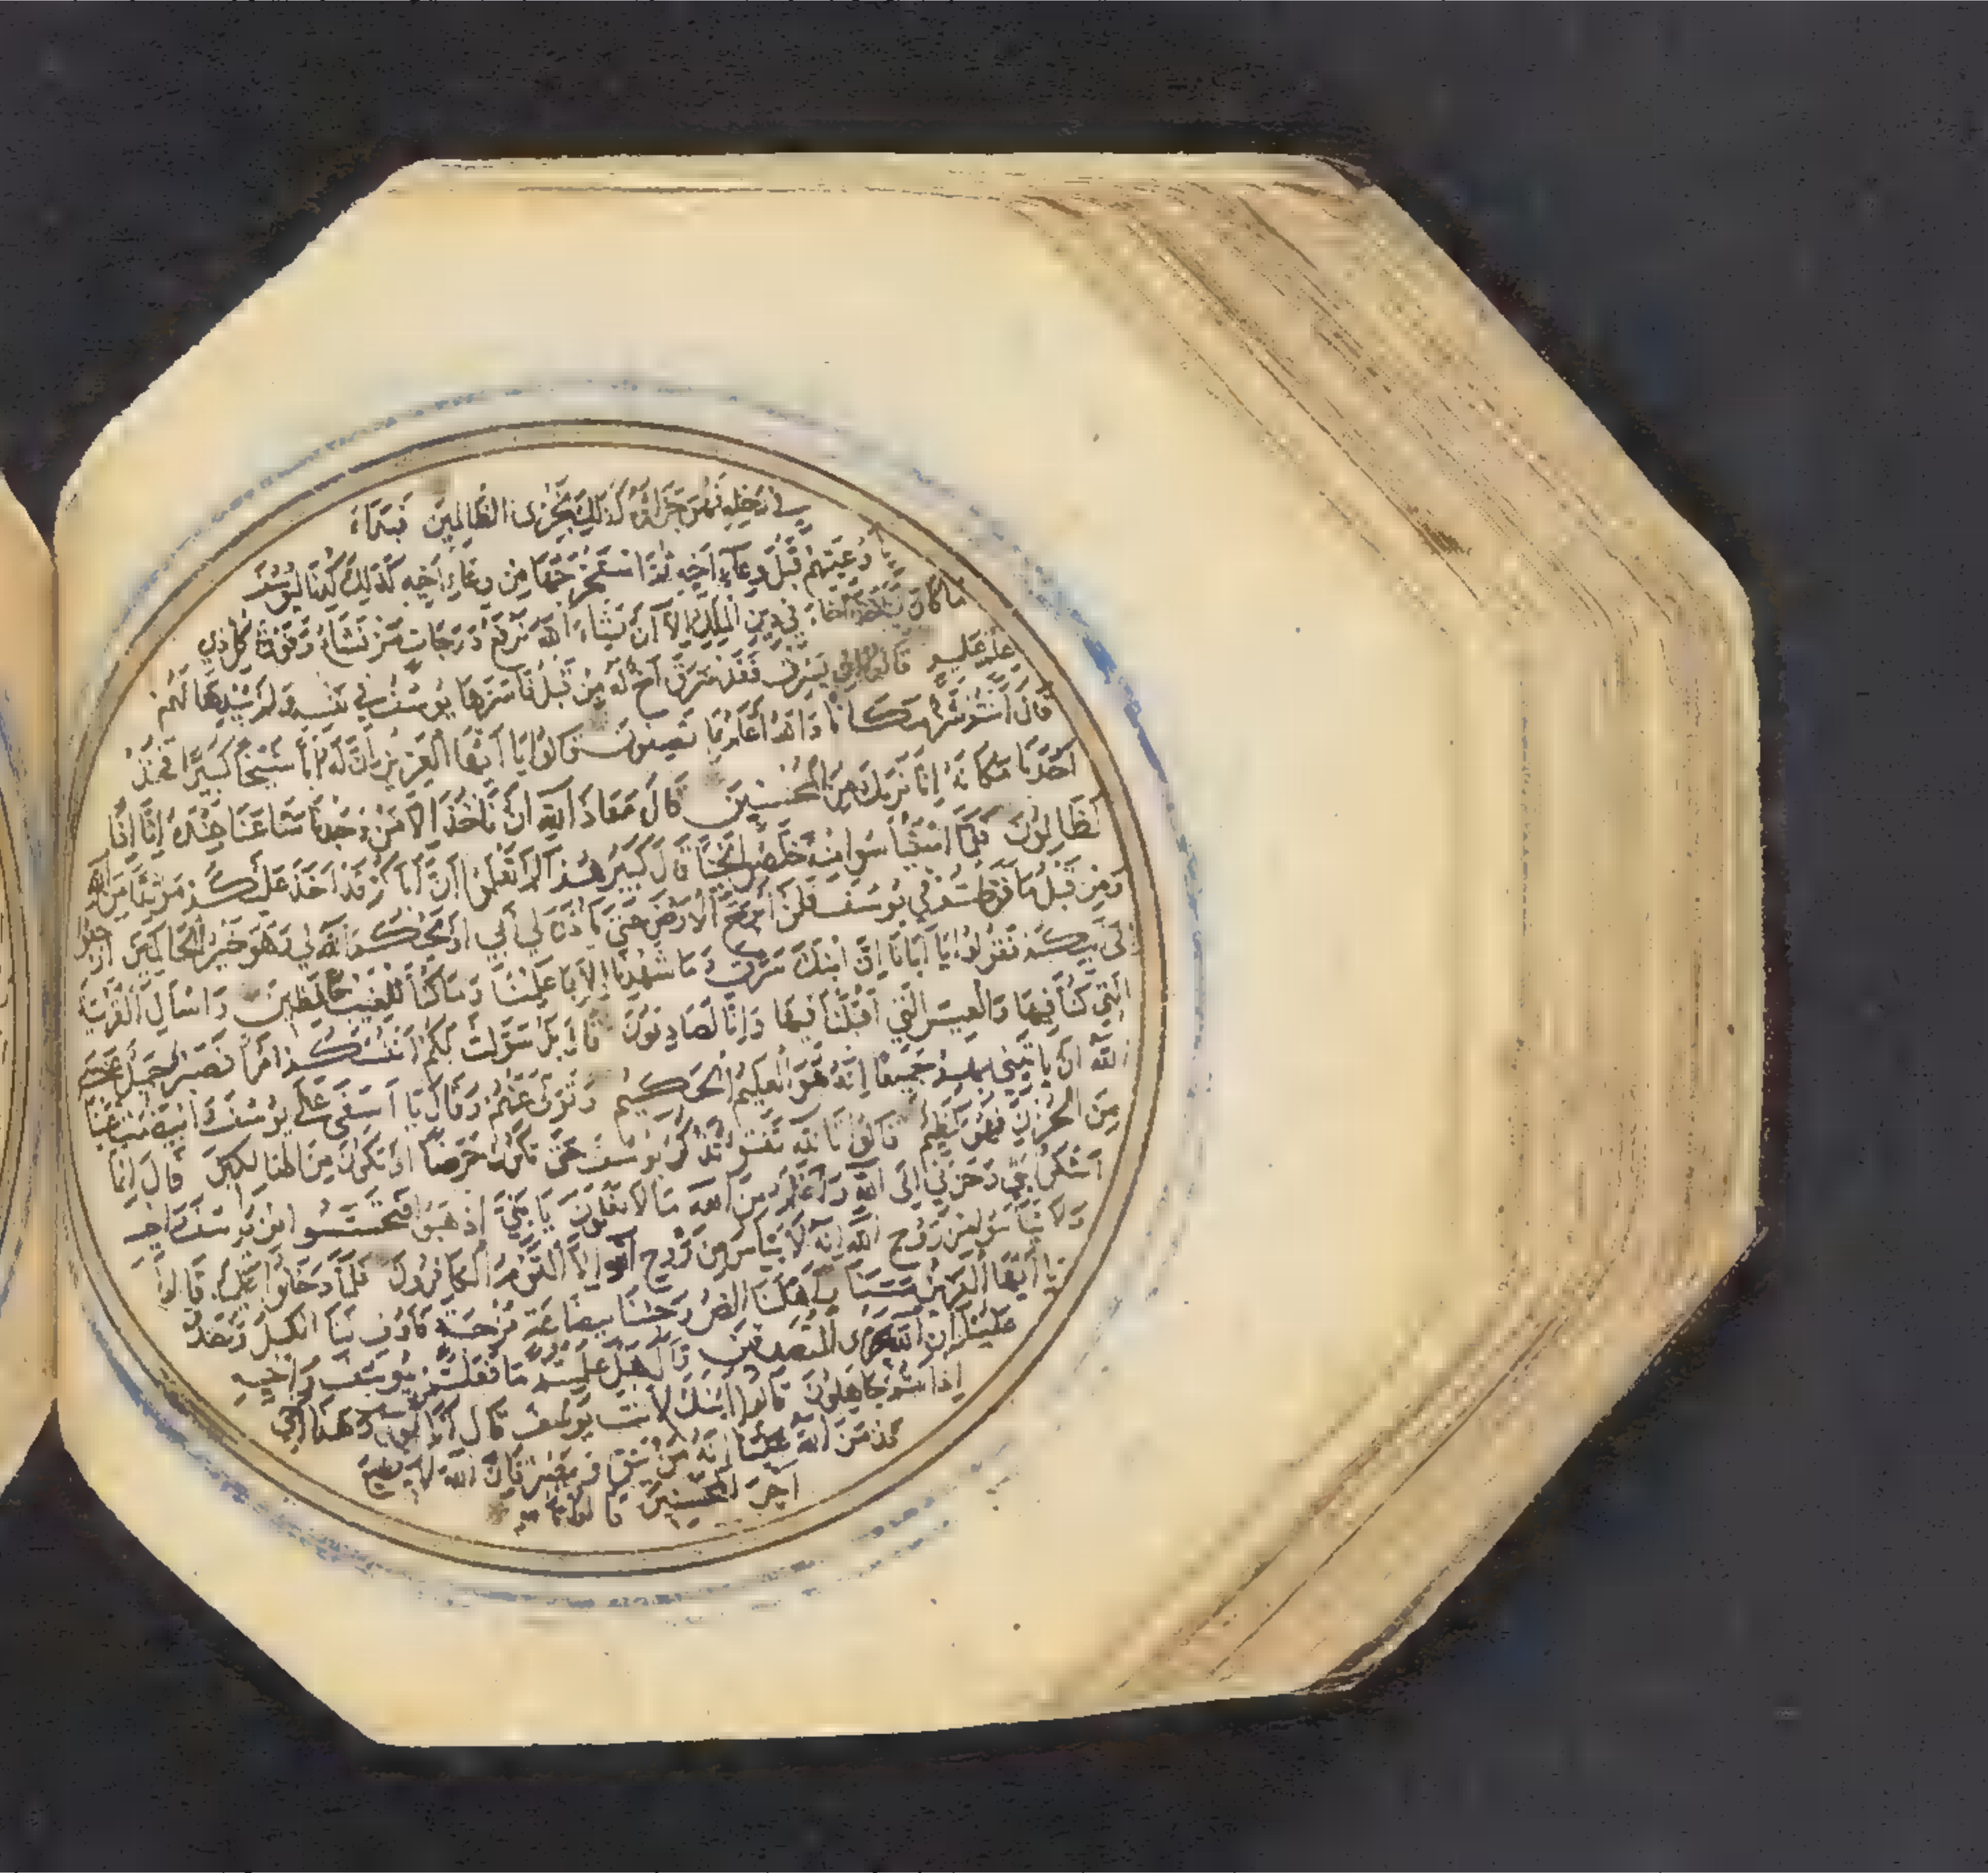 في رحله فهو جزاؤه كذلك نجزى الظالمين فبداء
وعيتهم قبل وعاء اخيه ثم استخرجها من وعاء اخيه كذلك كدنا ليوسف
ما كان اخاه في دين الملك الا ان يشاء الله نرفع درجات من نشاء وفوق كل ذي
علم عليم قالوا ان يسرق فقد سرق اخ له من قبل فاسرها يوسف في نفسه ولم يبدها لهم
قال انتم شر مكانا والله اعلم بما تصفون قالوا يا ايها العزيز ان له ابا شيخا كبيرا فخذ
احدنا مكانه انا نريك من المحسنين قال معاذ الله ان ناخذ الا من وجدنا متاعنا عنده انا اذا
لظالمون فلما استيأسوا منه خلصوا نجيا قال كبيرهم الم تعلموا ان اباكم قد اخذ عليكم موثقا من الله
ومن قبل ما فرطتم في يوسف فلن ابرح الارض حتى ياذن لي ابي او يحكم الله لي وهو خير الحاكمين ارجعوا
الى ابيكم فقولوا يا ابانا ان ابنك سرق وما شهدنا الا بما علمنا وما كنا للغيب حافظين واسأل القرية
التي كنا فيها والعير التي اقبلنا فيها وانا لصادقون قال بل سولت لكم انفسكم امرا فصبر جميل عسى
الله ان ياتيني بهم جميعا انه هو العليم الحكيم وتولى عنهم وقال يا اسفى على يوسف وابيضت عيناه
من الحزن فهو كظيم قالوا تالله تفتؤ تذكر يوسف حتى تكون حرضا او تكون من الهالكين قال انما
اشكو بثي وحزني الى الله واعلم من الله ما لا تعلمون يا بني اذهبوا فتحسسوا من يوسف واخيه
ولا تيأسوا من روح الله انه لا ييأس من روح الله الا القوم الكافرون فلما دخلوا عليه قالوا
يا ايها العزيز مسنا واهلنا الضر وجئنا ببضاعة مزجاة فاوف لنا الكيل وتصدق
علينا ان الله يجزى المتصدقين قال هل علمتم ما فعلتم بيوسف واخيه
اذ انتم جاهلون قالوا ائنك لانت يوسف قال انا يوسف وهذا اخي
قد من الله علينا انه من يتق ويصبر فان الله لا يضيع
اجر المحسنين قالوا تا لله